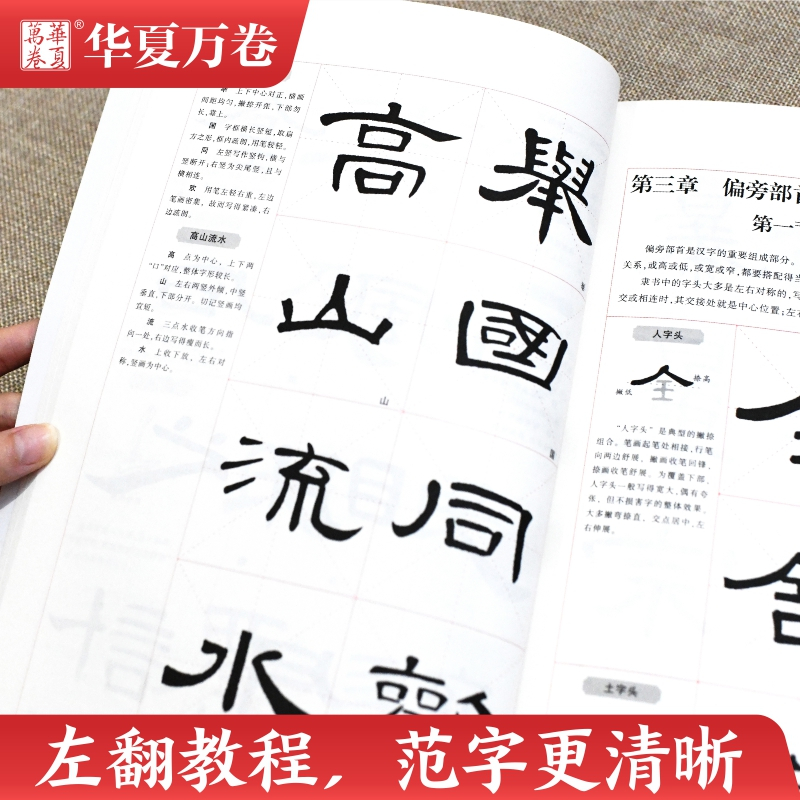 華夏
萬卷
®
华夏万卷
举 上下中心对正，横画
间距均匀，撇捺开张，下部勿
长，靠上。
国 字框横长竖短，取扁
方之形，框内疏朗，用笔较轻。
同 左竖写作竖钩，横与
竖断开；右竖为尖尾竖，且与
横相连。
欢 用笔左轻右重，左边
笔画密集，故而写得紧凑，右
边疏朗。
高山流水
高 点为中心，上下两
“口”对应，整体字形较长。
山 左右两竖外倾，中竖
垂直，下部分开。切记竖画均
宜短。
流 三点水收笔方向指
向一处，右边写得瘦而长。
水 上收下放，左右对
称，竖画为中心。
高
舉
山
國
流
同
水
山
国
第三章 偏旁部首
第一节
偏旁部首是汉字的重要组成部分。
关系，或高或低，或宽或窄，都要搭配得当
隶书中的字头大多是左右对称的，写
交或相连时，其交接处就是中心位置；左右
人字头
捺高
撇低
全
“人字头”是典型的撇捺
组合。笔画起笔处相接，行笔
向两边舒展，撇画收笔回锋，
捺画收笔舒展。为覆盖下部，
人字头一般写得宽大，偶有夸
张，但不损害字的整体效果。
大多撇弯捺直，交点居中，左
右伸展。
土字头
左翻教程，范字更清晰